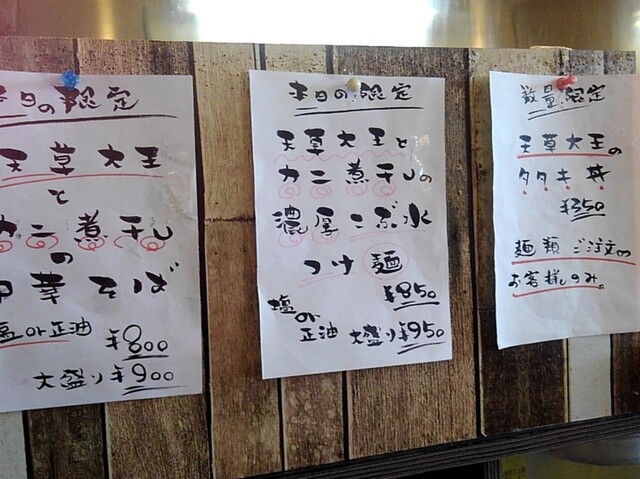 本日の限定
天草大王
と
カニ煮干し
の
中華そば
塩or正油
¥800
大盛り¥900
本日の限定
天草大王と
カニ煮干しの
濃厚こぶ水
つけ麺
¥850
塩
or
正油 大盛り¥950
数量限定
天草大王の
タタキ丼
¥350
麺類ご注文の
お客様のみ。